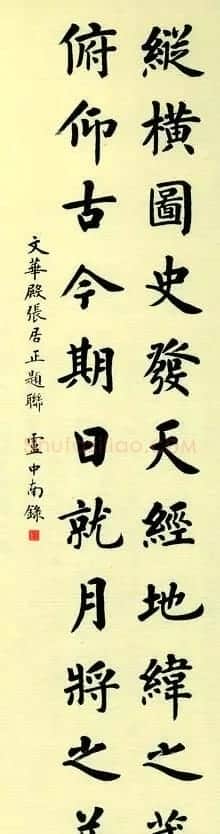 縱橫圖史發天經地緯之
俯仰古今期日就月將之
文華殿張居正題聯 盧中南錄